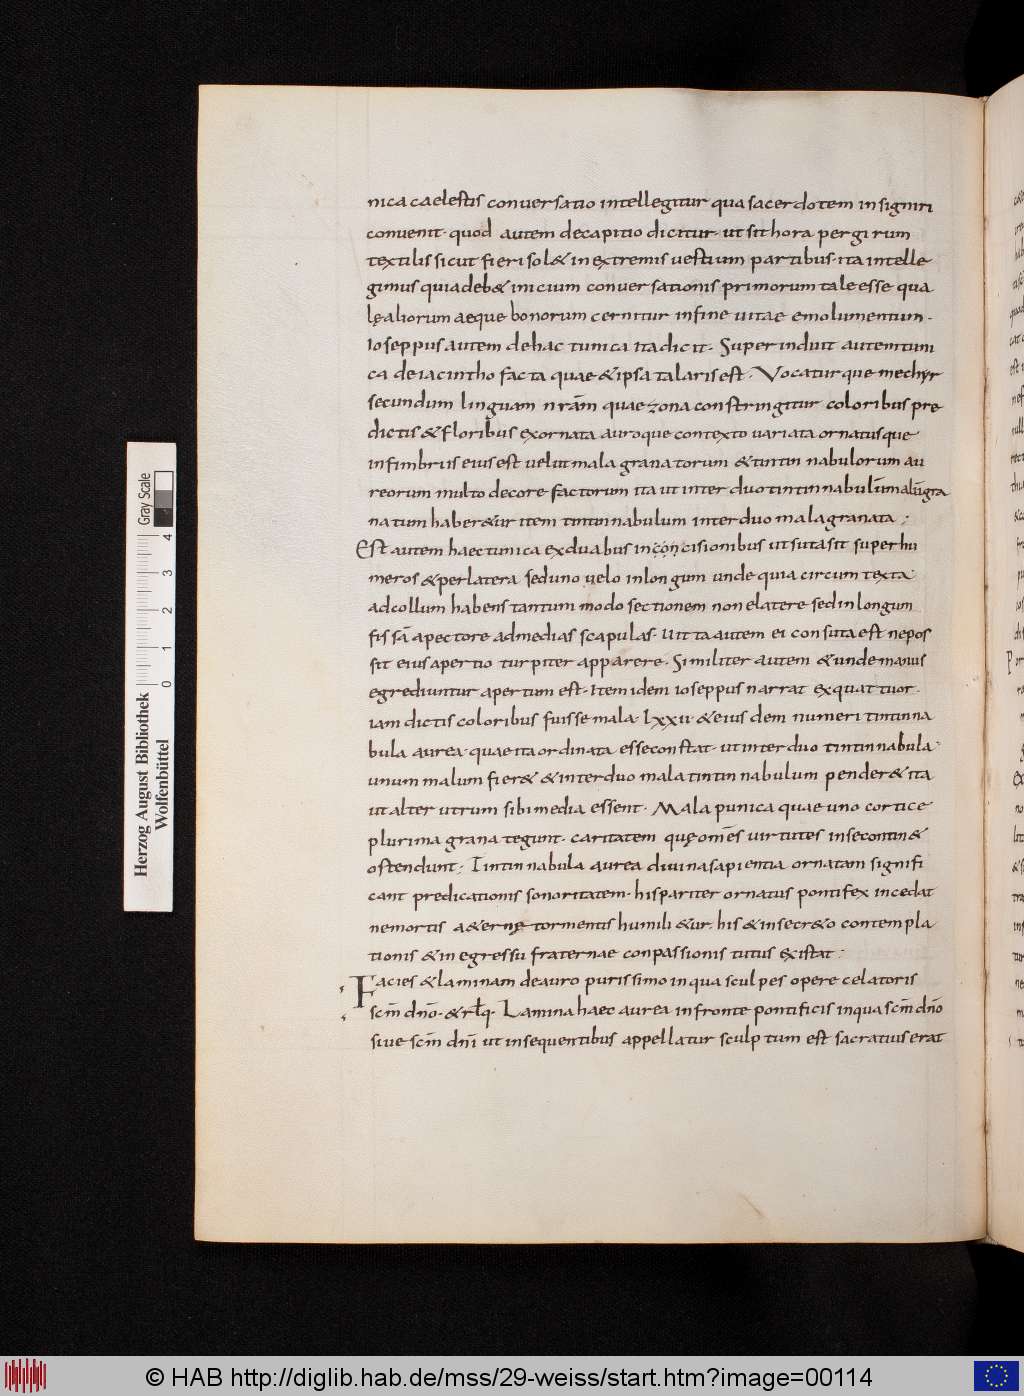 nica caelestis conuersatio intellegitur qua sacerdotem insigniri
conuenit· quod autem decapitio dicitur· ut sit hora per girum
textilis sicut fieri sol& in extremis uestium partibus· ita intelle
gimus quia deb& inicium conuersationis primorum tale esse qua
lę aliorum aeque bonorum cernitur in fine uitae emolumentum·
Ioseppus autem de hac tunica ita dicit· Superinduit autem tuni
ca de iacintho facta quae & ipsa talaris est· Vocaturque mechyr
secundum linguam nrām quae zona constringitur coloribus pre
dictis & floribus exornata auroque contexto uariata ornatusque
in fimbriis eius est uelut mala granatorum & tintinnabulorum au
reorum multo decore factorum ita ut inter duo tintinnabula malū gra
natum haber&ur item tintinnabulum inter duo mala granata ;
Est autem haec tunica ex duabus inconcisionibus ut suta sit super hu
meros & per latera sed uno uelo in longum unde quia circumtexta·
ad collum habens tantummodo sectionem non e latere sed in longum
fissā a pectore ad medias scapulas· Uitta autem ei consuta est ne pos
sit eius apertio turpiter apparere· Similiter autem & unde manus
egrediuntur apertum est· Item idem ioseppus narrat ex quattuor·
iam dictis coloribus fuisse mala· lxxii· & eiusdem numeri tintinna
bula aurea· quae ita ordinata esse constat· ut inter duo tintinnabula·
unum malum fier& & inter duo mala tintinnabulum pender& ita
ut alter utrum sibi media essent· Mala punica quae uno cortice
plurima grana tegunt· caritatem quę om̄es uirtutes in se contin&
ostendunt; Tintinnabula aurea diuina sapientia ornatam signifi
cant predicationis sonoritatem· his pariter ornatus pontifex incedat
ne mortis a&ernę tormentis humili&ur· his & in secr&o contempla
tionis & in egressu fraternae conpassionis tutus existat ;
Facies & laminam de auro purissimo in qua sculpes opere celatoris
scm̄ dn̄o· & rłq· Lamina haec aurea in fronte pontificis in qua scm̄ dn̄o
siue scm̄ dn̄i ut in sequentibus appellatur sculptum est sacratius erat
Herzog August Bibliothek
Wolfenbüttel
0 1 2 3 4
Gray Scale
© HAB http://diglib.hab.de/mss/29-weiss/start.htm?image=00114